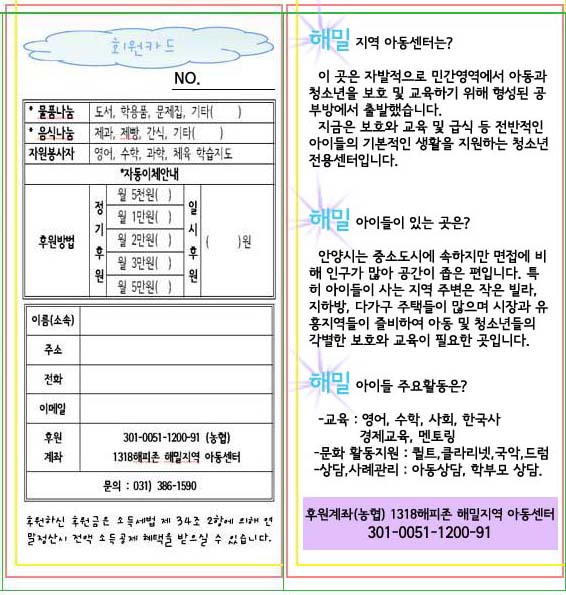 회원카드
NO.
* 물품나눔 도서, 학용품, 문제집, 기타( )
* 음식나눔 제과, 제빵, 간식, 기타( )
자원봉사자 영어, 수학, 과학, 체육 학습지도
*자동이체안내
후원방법
정기후원
월 5천원( )
월 1만원( )
월 2만원( )
월 3만원( )
월 5만원( )
일시후원
( )원
이름(소속)
주소
전화
이메일
후원 301-0051-1200-91 (농협)
계좌 1318해피존 해밀지역 아동센터
문의 : 031) 386-1590
후원하신 후원금은 소득세법 제 34조 2항에 의해 연
말정산시 전액 소득공제 혜택을 받으실 수 있습니다.
해밀 지역 아동센터는?
이 곳은 자발적으로 민간영역에서 아동과
청소년을 보호 및 교육하기 위해 형성된 공
부방에서 출발했습니다.
지금은 보호와 교육 및 급식 등 전반적인
아이들의 기본적인 생활을 지원하는 청소년
전용센터입니다.
해밀 아이들이 있는 곳은?
안양시는 중소도시에 속하지만 면접에 비
해 인구가 많아 공간이 좁은 편입니다. 특
히 아이들이 사는 지역 주변은 작은 빌라,
지하방, 다가구 주택들이 많으며 시장과 유
흥지역들이 즐비하여 아동 및 청소년들의
각별한 보호와 교육이 필요한 곳입니다.
해밀 아이들 주요활동은?
-교육 : 영어, 수학, 사회, 한국사
경제교육, 멘토링
-문화 활동지원 : 퀼트,클라리넷,국악,드럼
-상담,사례관리 : 아동상담, 학부모 상담.
후원계좌(농협) 1318해피존 해밀지역 아동센터
301-0051-1200-91